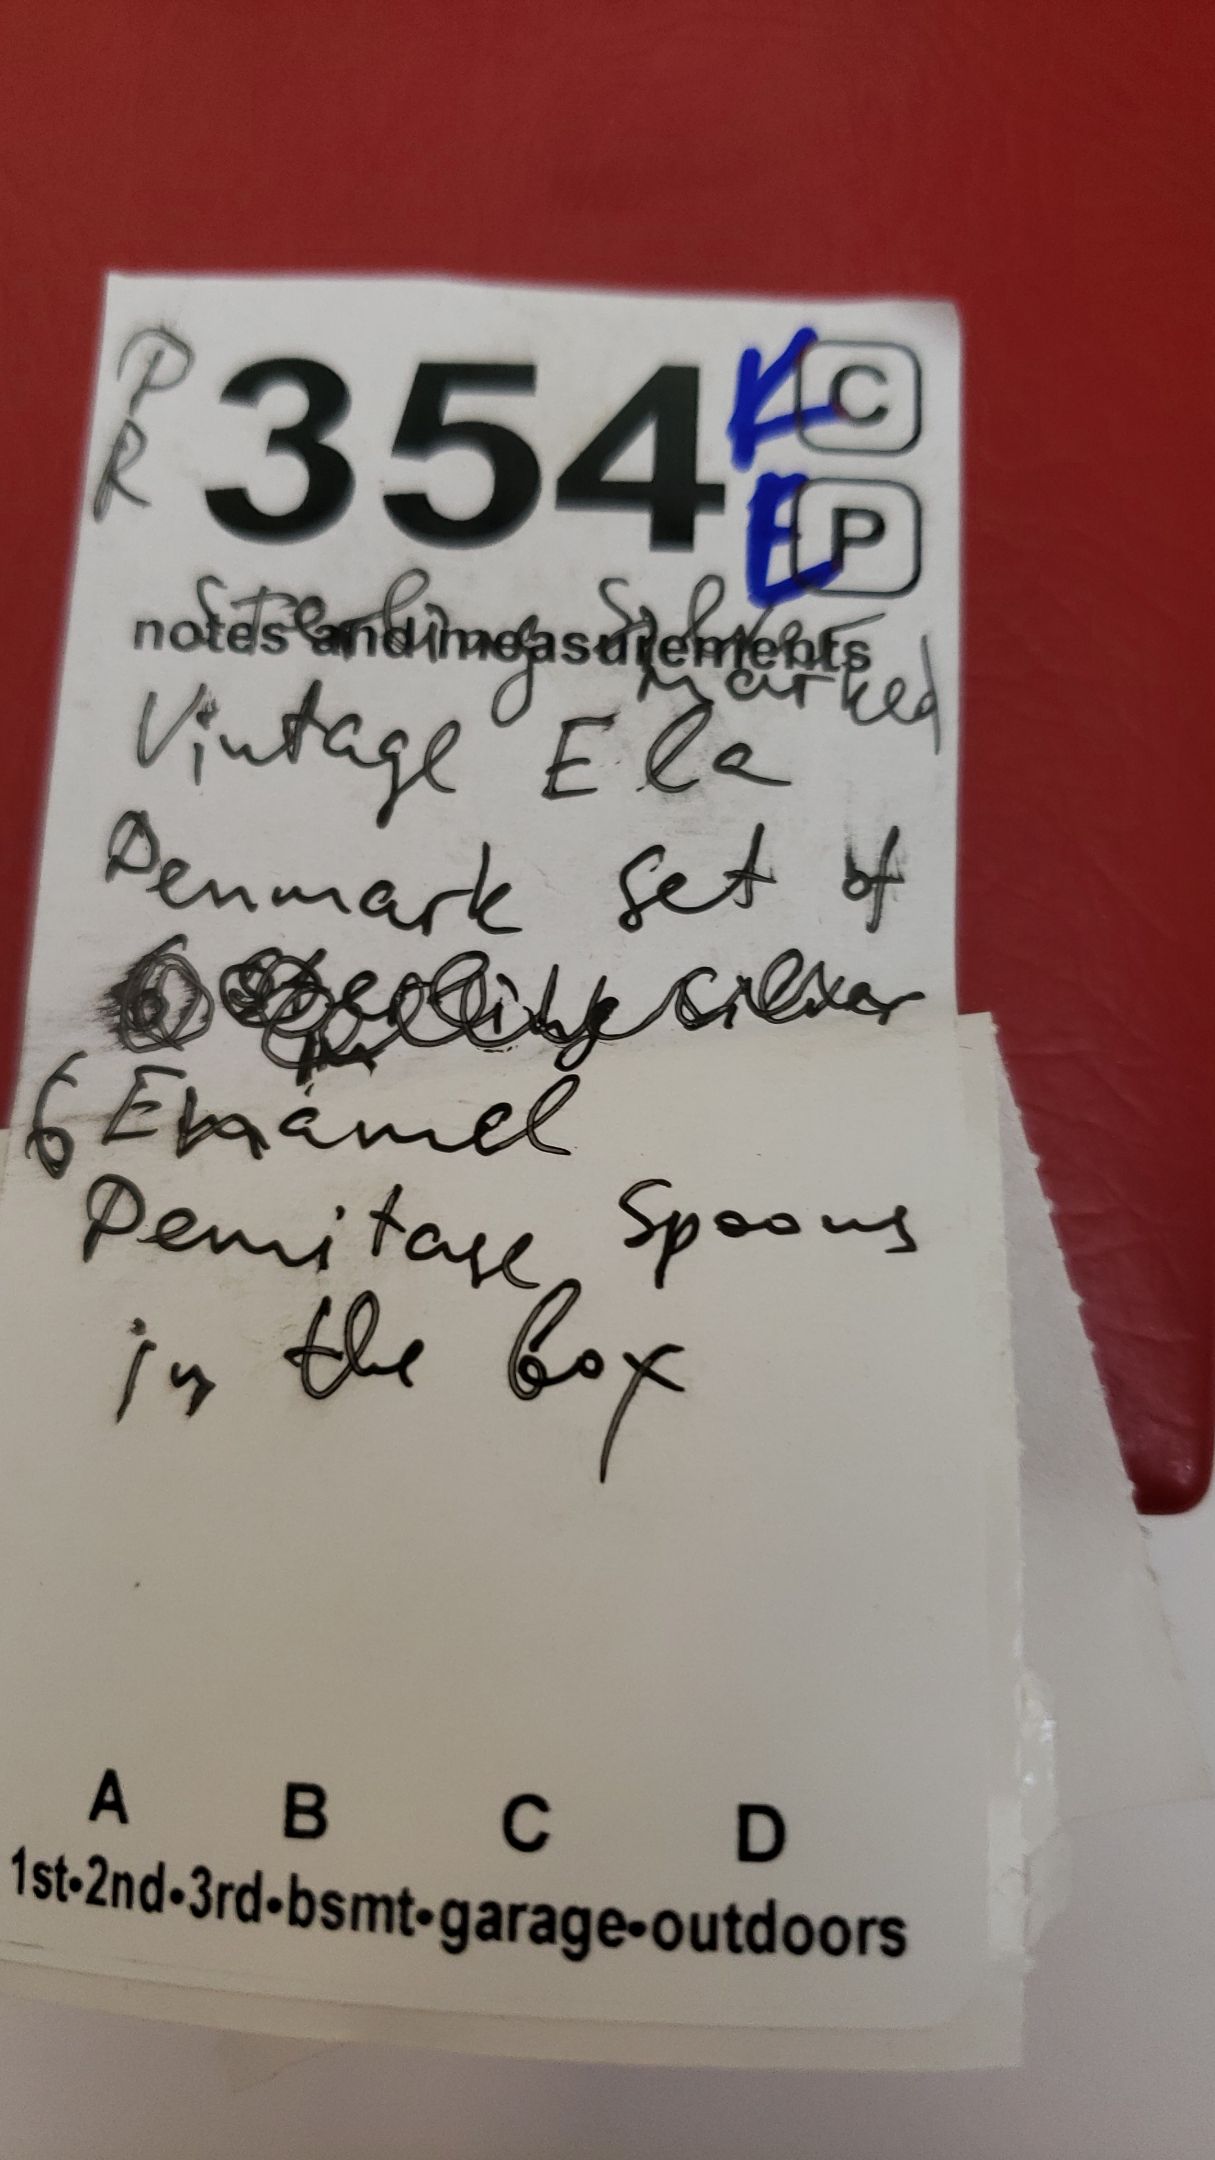 P
R
354
K
C
E
P
Sterling Silver
notes and measurements
marked
Vintage Ela
Denmark set of
6 Sterling silver
6 Enamel
Demitase Spoons
in the box
A B C D
1st•2nd•3rd•bsmt•garage•outdoors